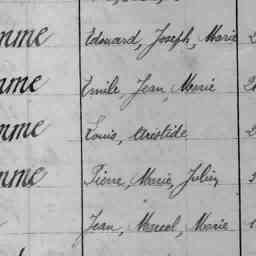 mme Edouard, Joseph, Marie 2
mme Emile Jean, Marie 2
mme Louis, Aristide 2
mme Pierre, Marie, Julien
Jean, Marcel, Marie 1